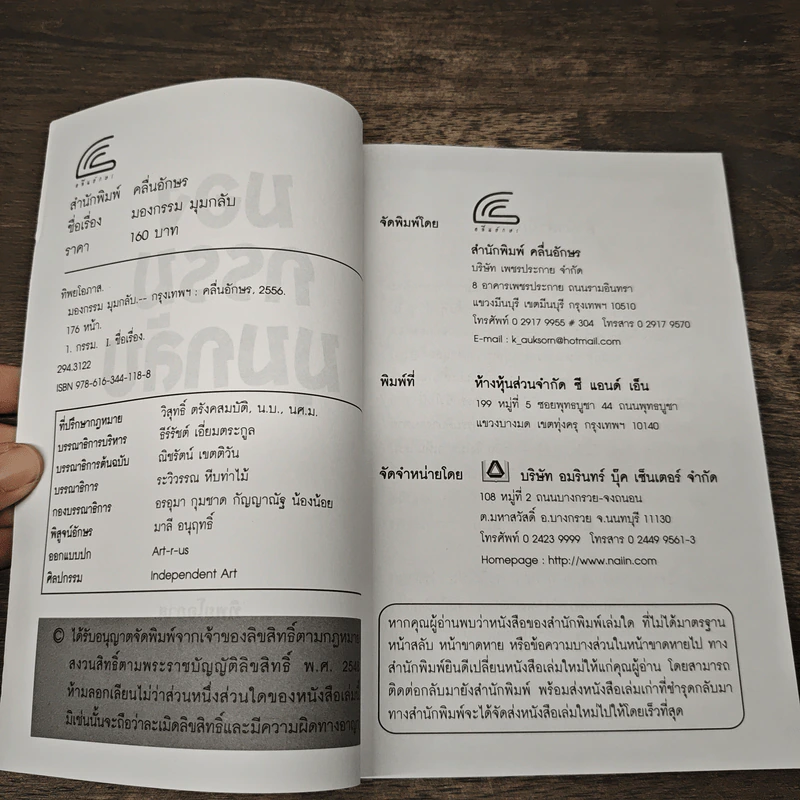 คลื่นอักษร
สำนักพิมพ์ คลื่นอักษร
ชื่อเรื่อง มองกรรม มุมกลับ
ราคา 160 บาท
ทิพยโอภาส.
มองกรรม มุมกลับ.-- กรุงเทพฯ : คลื่นอักษร, 2556.
176 หน้า.
1. กรรม. I. ชื่อเรื่อง.
294.3122
ISBN 978-616-344-118-8
ที่ปรึกษากฎหมาย วิสุทธิ์ ตรังคสมบัติ, น.บ., นศ.ม.
บรรณาธิการบริหาร ธีร์รัชต์ เอี่ยมตระกูล
บรรณาธิการต้นฉบับ ณิชรัตน์ เขตติวัน
บรรณาธิการ ระวิวรรณ หีบท่าไม้
กองบรรณาธิการ อรอุมา กุมชาด กัญญาณัฐ น้องน้อย
พิสูจน์อักษร มาลี อนุฤทธิ์
ออกแบบปก Art-r-us
ศิลปกรรม Independent Art
© ได้รับอนุญาตจัดพิมพ์จากเจ้าของลิขสิทธิ์ตามกฎหมาย
สงวนสิทธิ์ตามพระราชบัญญัติลิขสิทธิ์ พ.ศ.
ห้ามลอกเลียนไม่ว่าส่วนหนึ่งส่วนใดของหนังสือเล่ม
มิเช่นนั้นจะถือว่าละเมิดลิขสิทธิ์และมีความผิดทาง
คลื่นอักษร
จัดพิมพ์โดย
สำนักพิมพ์ คลื่นอักษร
บริษัท เพชรประกาย จำกัด
8 อาคารเพชรประกาย ถนนรามอินทรา
แขวงมีนบุรี เขตมีนบุรี กรุงเทพฯ 10510
โทรศัพท์ 0 2917 9955 # 304 โทรสาร 0 2917 9570
E-mail : k_auksorn@hotmail.com
พิมพ์ที่ ห้างหุ้นส่วนจำกัด ซี แอนด์ เอ็น
199 หมู่ที่ 5 ซอยพุทธบูชา 44 ถนนพุทธบูชา
แขวงบางมด เขตทุ่งครุ กรุงเทพฯ 10140
จัดจำหน่ายโดย บริษัท อมรินทร์ บุ๊ค เซ็นเตอร์ จำกัด
108 หมู่ที่ 2 ถนนบางกรวย-จงถนอม
ต.มหาสวัสดิ์ อ.บางกรวย จ.นนทบุรี 11130
โทรศัพท์ 0 2423 9999 โทรสาร 0 2449 9561-3
Homepage : http://www.naiin.com
หากคุณผู้อ่านพบว่าหนังสือของสำนักพิมพ์เล่มใด ที่ไม่ได้มาตรฐาน
หน้าสลับ หน้าขาดหาย หรือข้อความบางส่วนในหน้าขาดหายไป ทาง
สำนักพิมพ์ยินดีเปลี่ยนหนังสือเล่มใหม่ให้แก่คุณผู้อ่าน โดยสามารถ
ติดต่อกลับมายังสำนักพิมพ์ พร้อมส่งหนังสือเล่มเก่าที่ชำรุดกลับมา
ทางสำนักพิมพ์จะได้จัดส่งหนังสือเล่มใหม่ไปให้โดยเร็วที่สุด